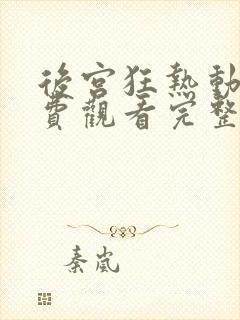 後宮狂熱動
費觀看完整
秦嵐